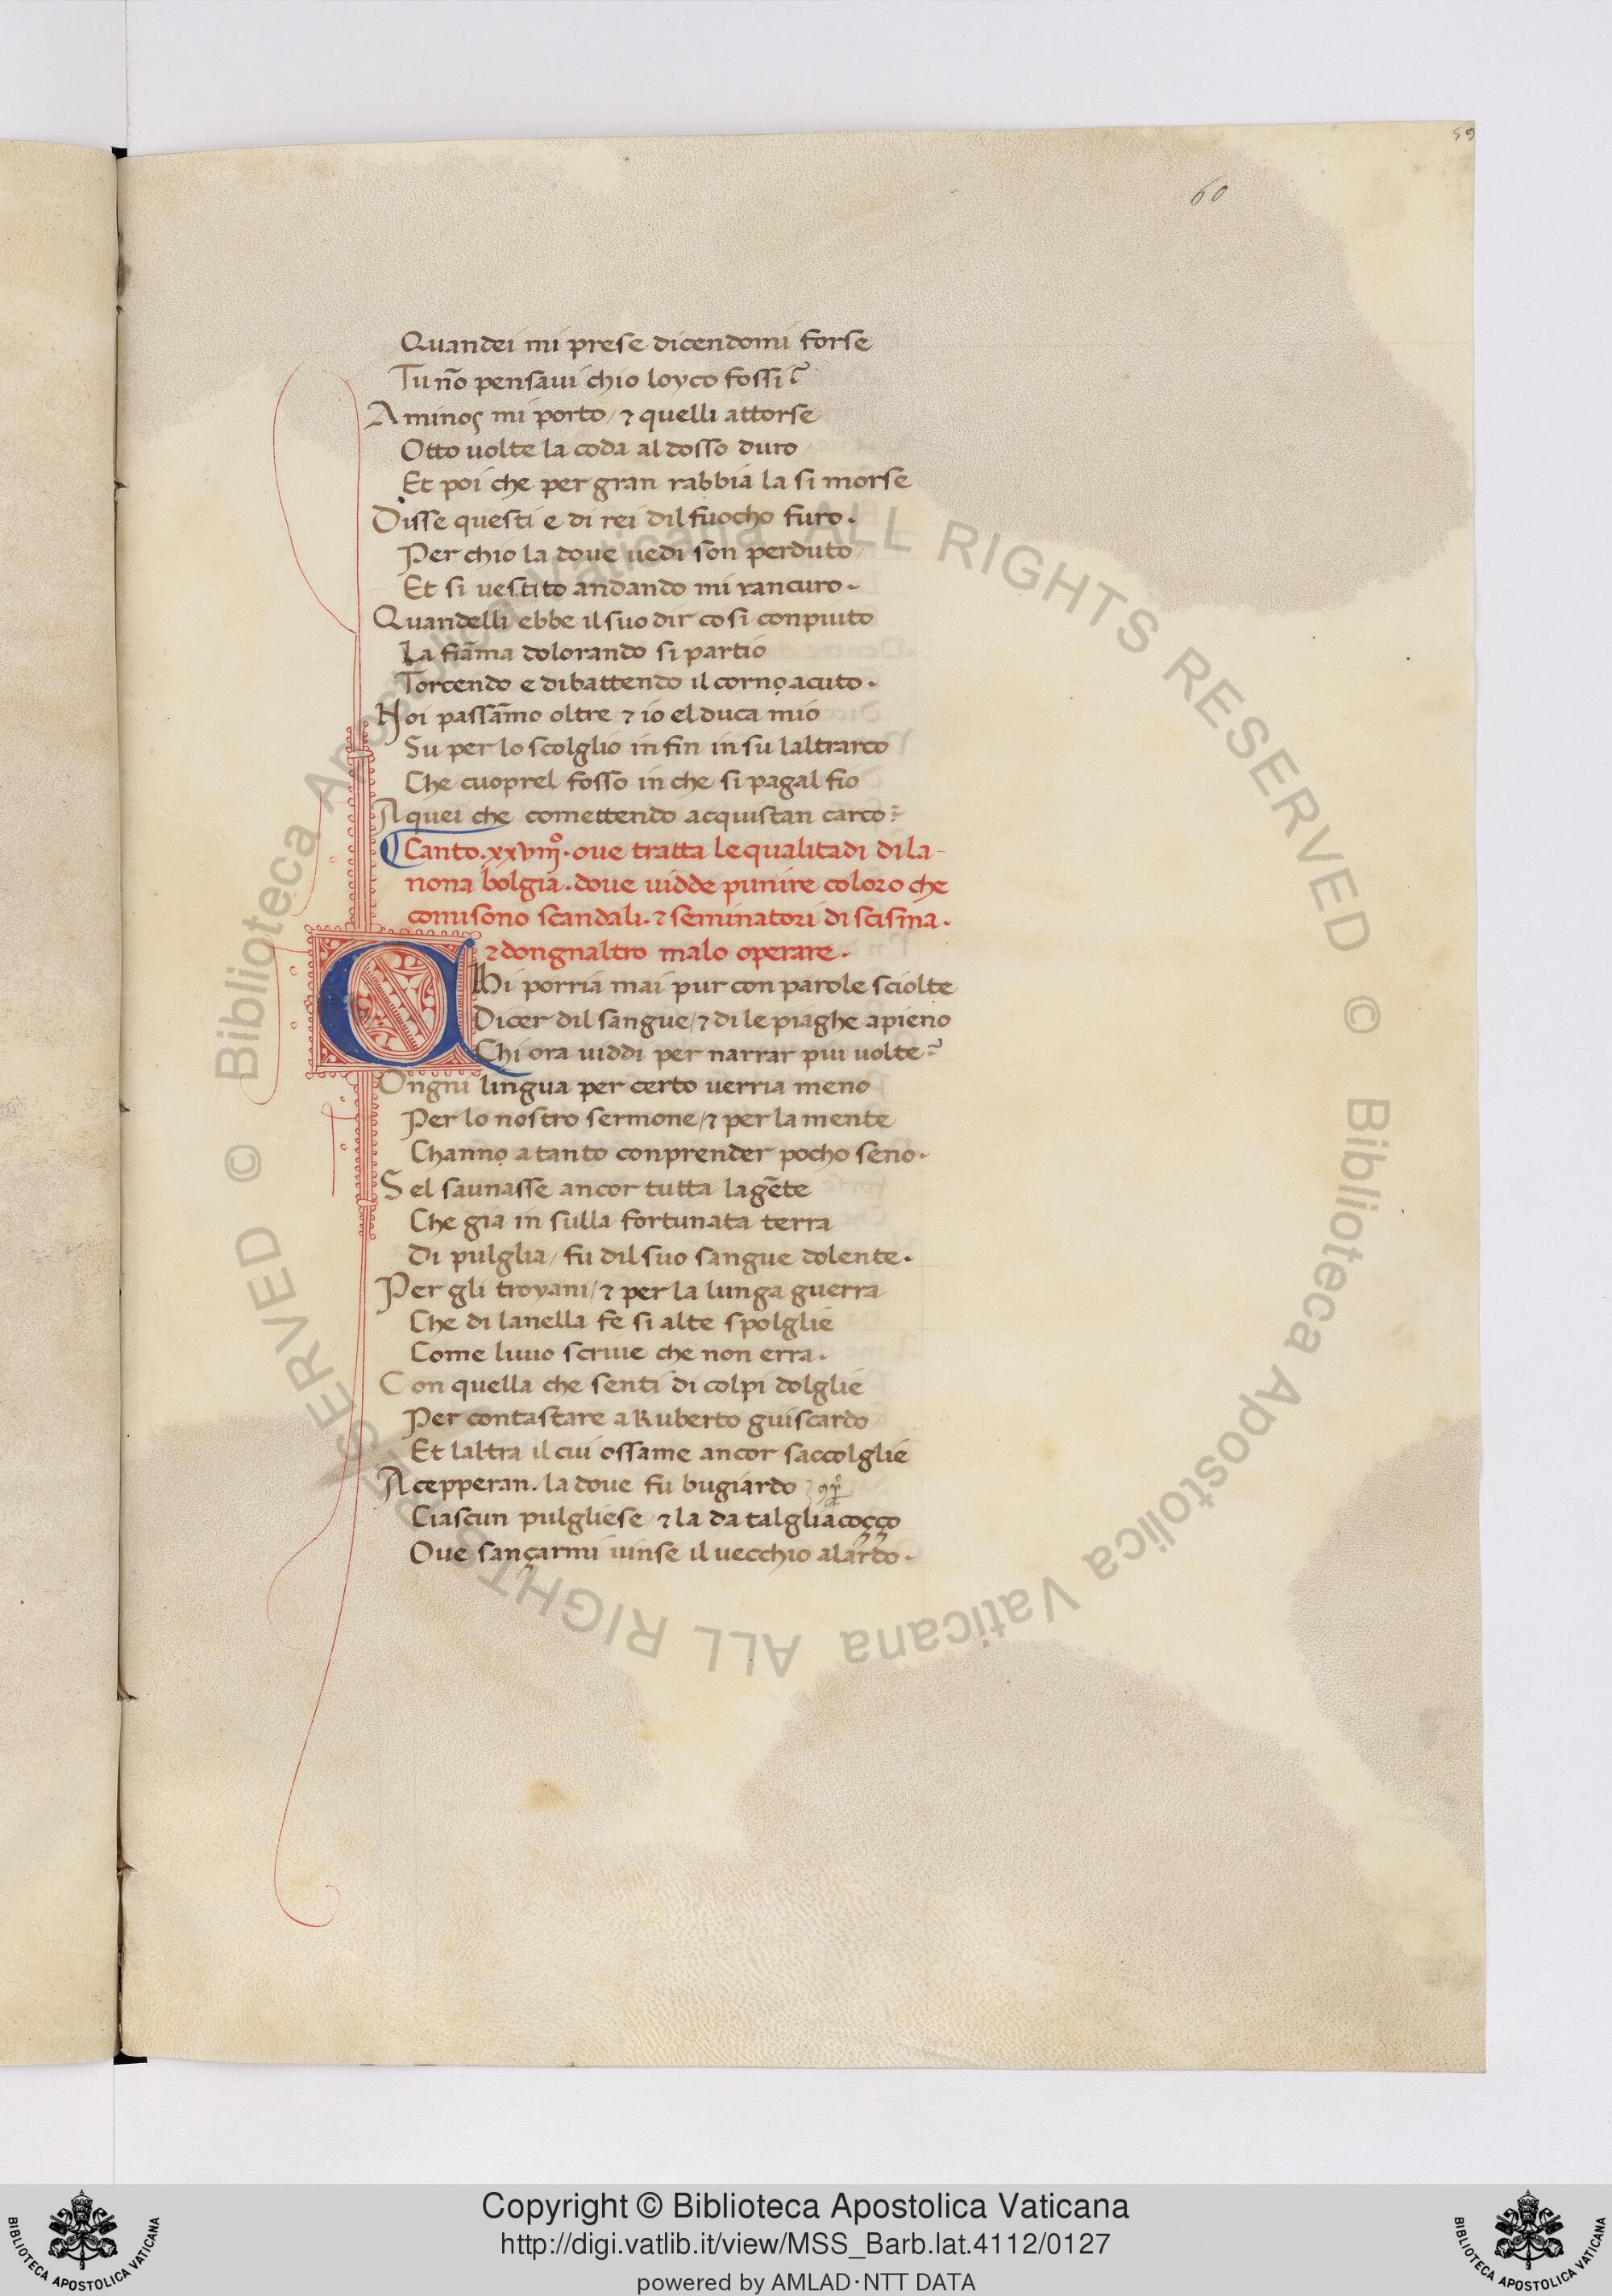 59
60
Quandei mi prese dicendomi forse
Tu nõ pensaui chio loyco fossi
Aminos mi porto / ⁊ quelli attorse
Otto uolte la coda al dosso duro
Et poi che per gran rabbia la si morse
Disse questi e di rei dil fuocho furo.
Per chio la doue uedi son perduto
Et si uestito andando mi rancuro.
Quandelli ebbe il suo dir cosi conpiuto
La fiãma dolorando si partio
Torcendo e dibattendo il corno acuto.
Noi passãmo oltre ⁊ io el duca mio
Su per lo scolglio in fin in su laltrarco
Che cuoprel fosso in che si pagal fio
A quei che comettendo acquistan carco
Canto .xxviiiº. oue tratta le qualitadi di la-
nona bolgia. doue uidde punire coloro che
comisono scandali. ⁊ seminatori di scisma.
⁊ dongnaltro malo operare.
Chi porria mai pur con parole sciolte
Dicer dil sangue / ⁊ di le piaghe apieno
Chi ora uiddi per narrar piu uolte
Ongni lingua per certo uerria meno
Per lo nostro sermone / ⁊ per la mente
Channo a tanto conprender pocho seno.
Sel saunasse ancor tutta la gẽte
Che gia in sulla fortunata terra
Di pulglia / fu dil suo sangue dolente.
Per gli troyani / ⁊ per la lunga guerra
Che di lanella fe si alte spolglie
Come liuio scriue che non erra.
Con quella che senti di colpi dolglie
Per contastare a Ruberto guiscardo
Et laltra il cui ossame ancor saccolglie
Acepperan. la doue fu bugiardo
Ciascun pulgliese / ⁊ la da talgliacoçço
Oue sançarmi uinse il uecchio alardo.
© Biblioteca Apostolica Vaticana ALL RIGHTS RESERVED © Biblioteca Apostolica Vaticana ALL RIGHTS RESERVED
Copyright © Biblioteca Apostolica Vaticana
http://digi.vatlib.it/view/MSS_Barb.lat.4112/0127
powered by AMLAD·NTT DATA
BIBLIOTECA APOSTOLICA VATICANA
BIBLIOTECA APOSTOLICA VATICANA